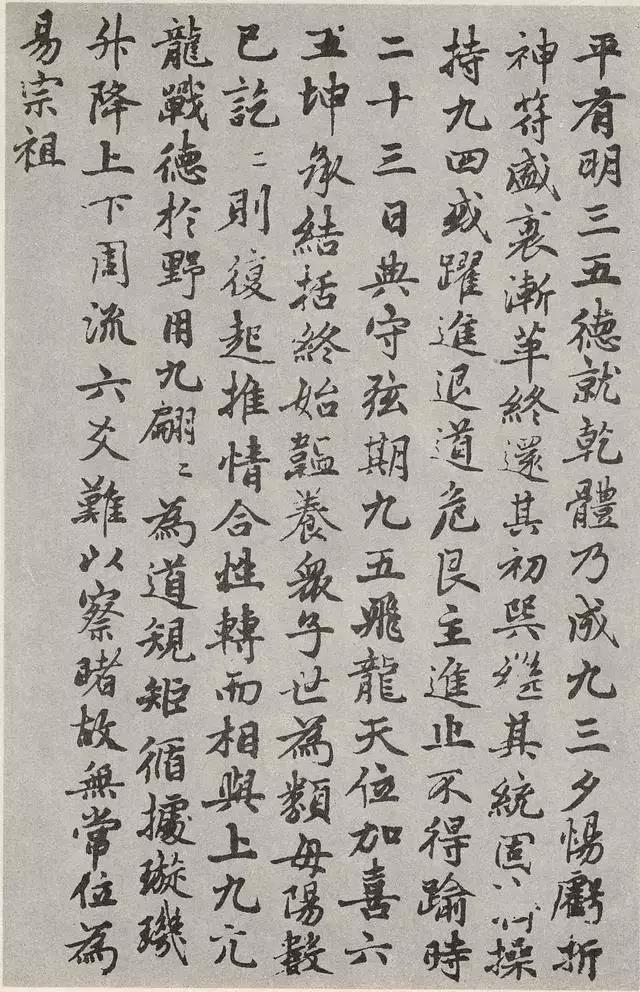 平有明三五德就乾體乃成九三夕惕虧折
神符盛衰漸革終還其初巽繼其統固操
持九四或躍進退道危艮主進止不得踰時
二十三日典守弦期九五飛龍天位加喜六
五坤承結括終始韞養眾子世為類母陽數
已訖〻則復起推情合性轉而相與上九亢
龍戰德於野用九翩〻為道規矩循據璇璣
升降上下周流六爻難以察睹故無常位為
易宗祖